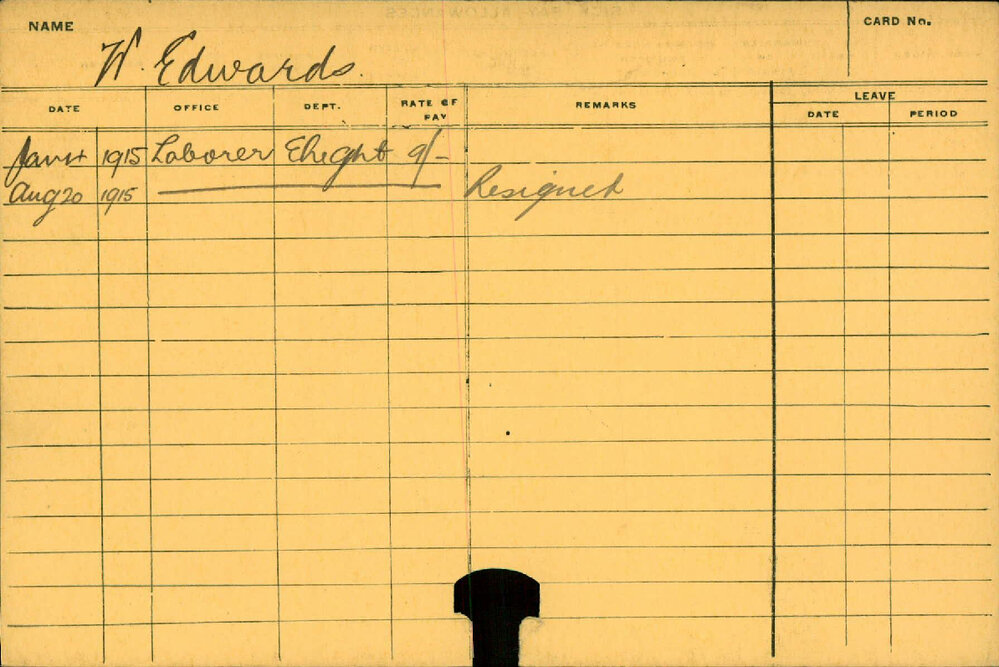 NAME W. Edwards. CARD No.
DATE OFFICE DEPT. RATE OF PAY REMARKS LEAVE
DATE PERIOD
1915 Laborer Elieght 9/-
Aug 20 1915 Resigned